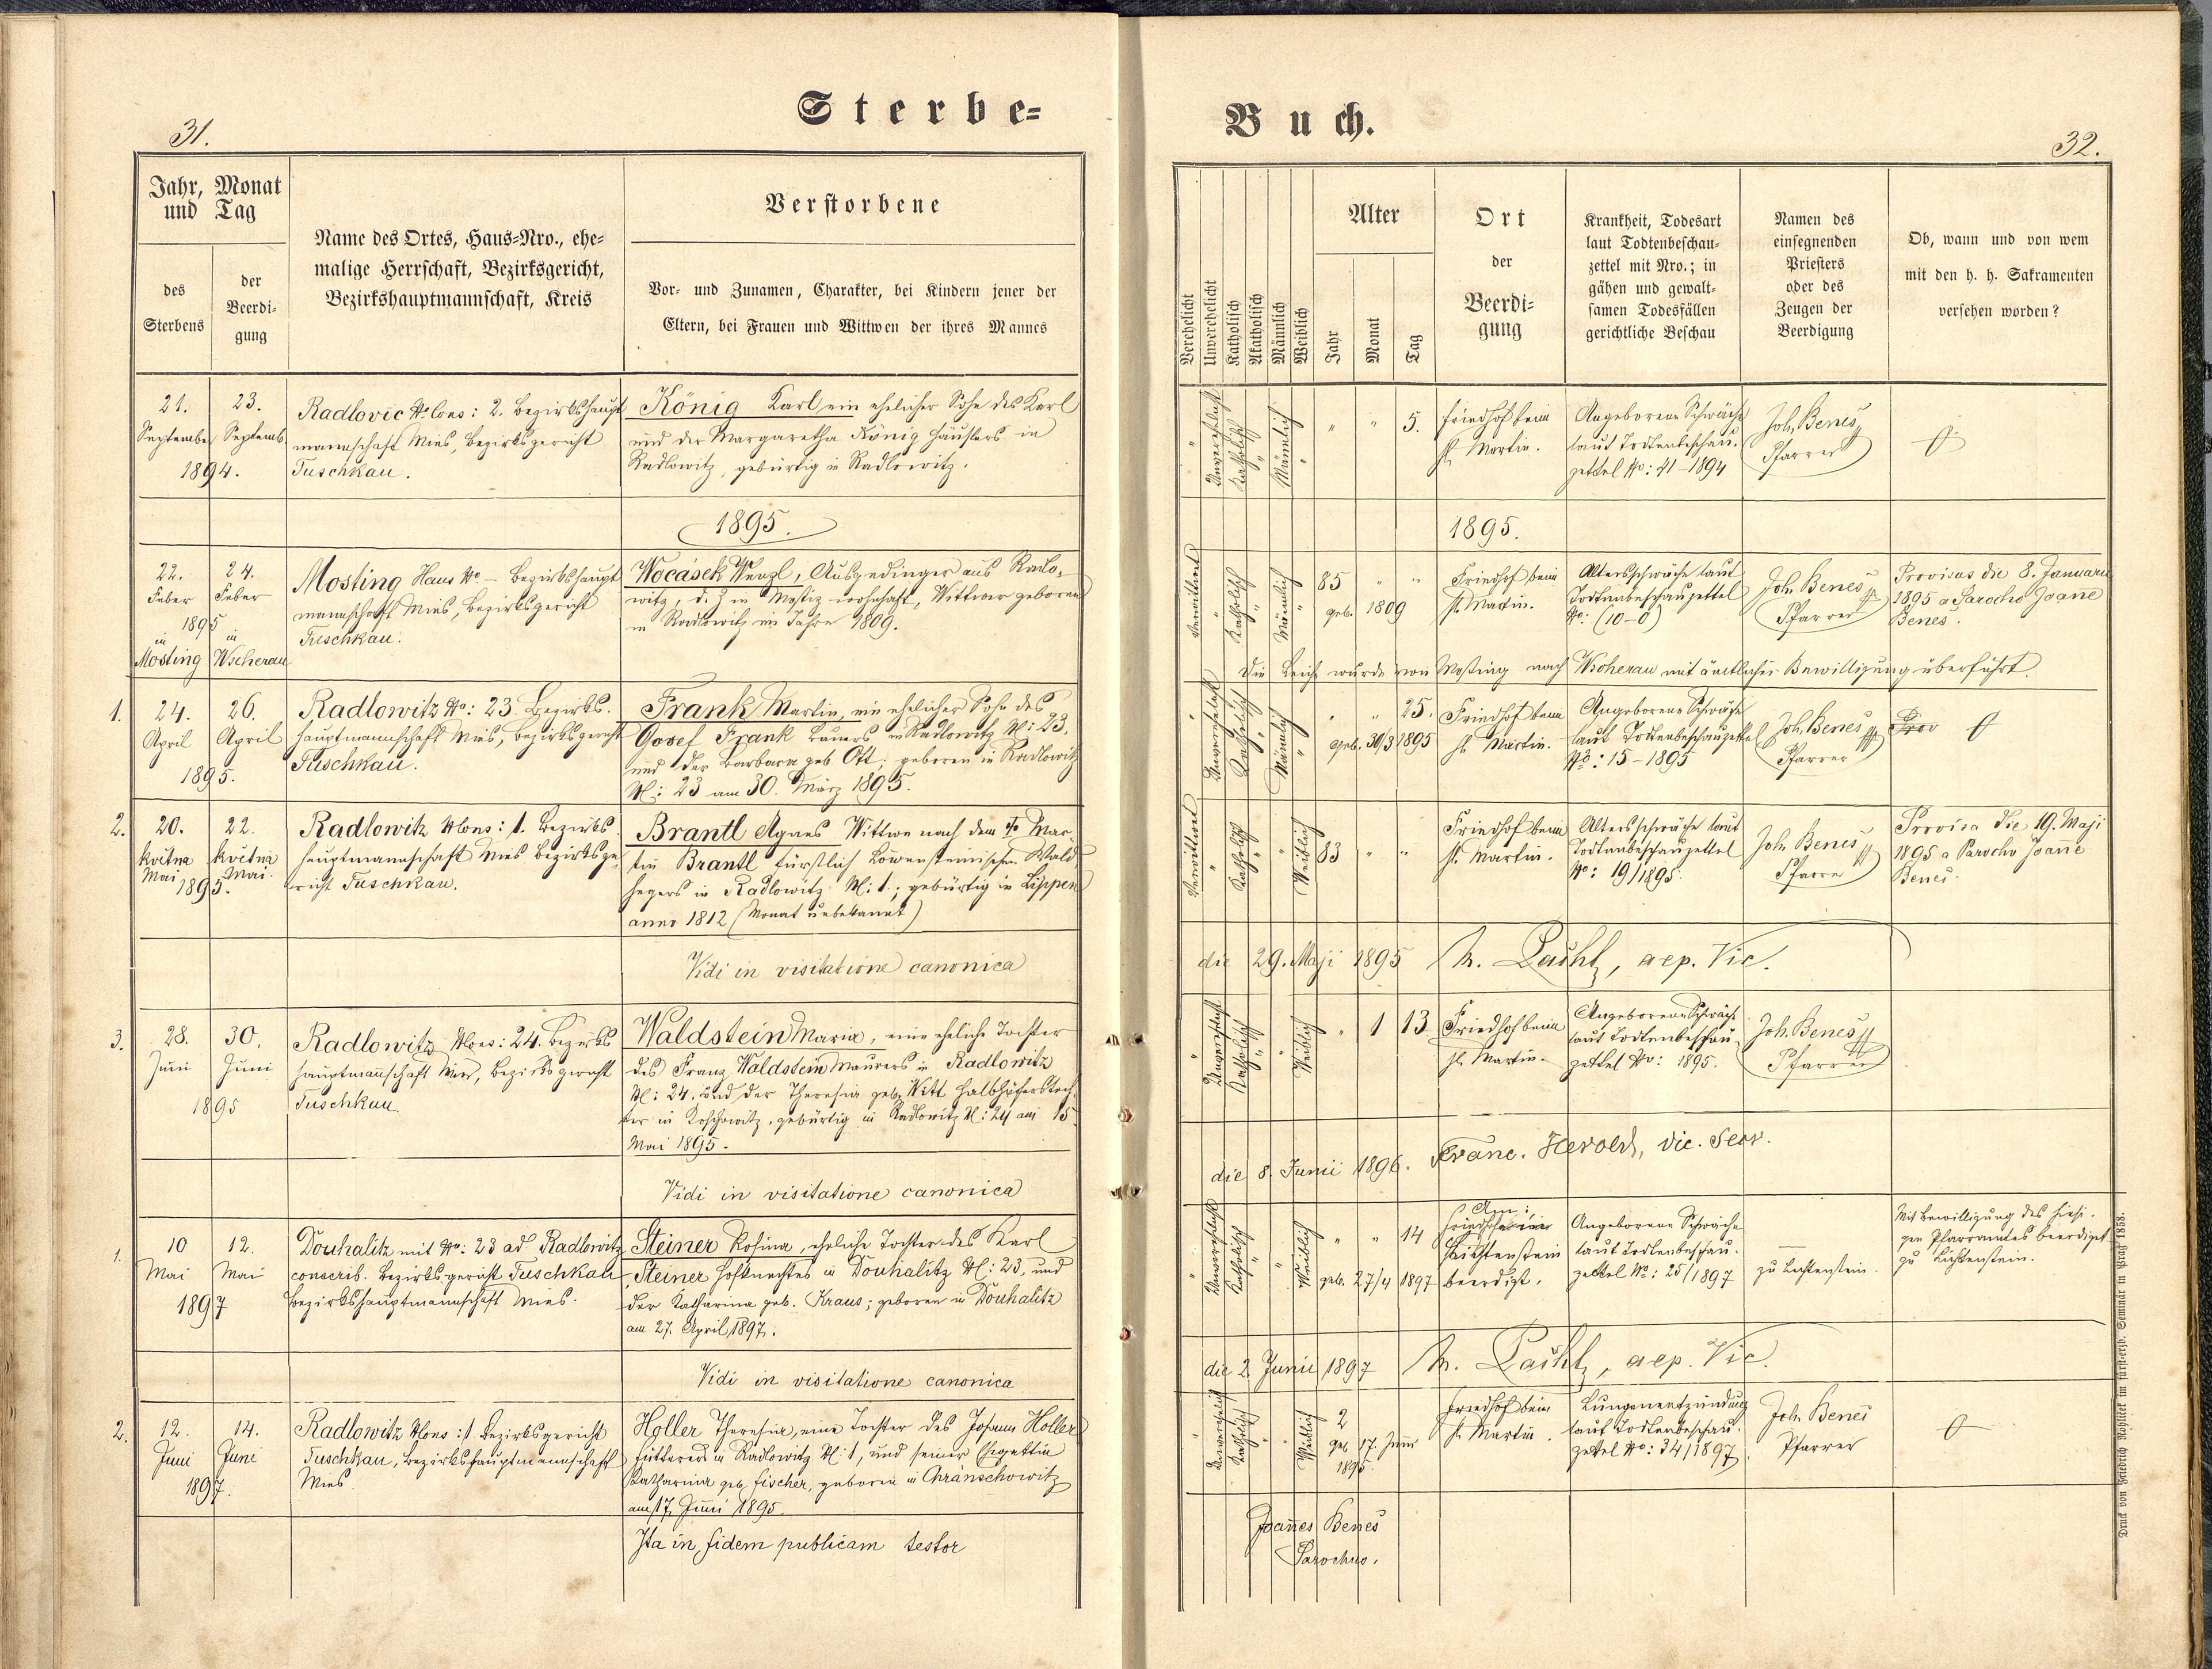 Sterbe=
31.
Jahr, Monat und Tag
des Sterbens
der Beerdi-
gung
Name des Ortes, Haus=Nro., ehe=
malige Herrschaft, Bezirksgericht,
Bezirkshauptmannschaft, Kreis
Verstorbene
Vor- und Zunamen, Charakter, bei Kindern jener der
Eltern, bei Frauen und Wittwen der ihres Mannes
21. September
23. Septemb.
1894.
Radlovic No Cons: 2. Bezirkshaupt
mannschaft Mies, Bezirksgericht
Tuschkau.
König Karl ein ehelicher Sohn des Karl
und der Margaretha König Häuslers in
Radlowitz, gebürtig in Radlowitz.
1895.
22. Feber
24. Feber
1895
in Mosting
in Wscherau
Mosting Haus No – Bezirkshaupt
mannschaft Mies, Bezirksgericht
Tuschkau.
Wocásek Wenzl, Ausgedinger aus Radlo-
witz, d. Z in Mostiz wohnhaft, Wittwer geboren
in Radlowitz im Jahre 1809.
1. 24. April
26. April
1895.
Radlowitz No: 23. Bezirks-
hauptmannschaft Mies, Bezirksgericht
Tuschkau.
Frank Martin, ein ehelicher Sohn des
Josef Frank Bauers in Radlowitz N: 23,
und der Barbara geb. Ott; geboren in Radlowitz
N: 23 am 30. März 1895.
2. 20. května Mai
22. května Mai.
1895.
Radlowitz NCons: 1. Bezirks
hauptmannschaft Mies Bezirksge-
richt Tuschkau.
Brantl Agnes Wittwe nach dem † Mar-
tin Brantl fürstlich Löwensteinischen Wald
hegers in Radlowitz N: 1; gebürtig in Lippen
anno 1812 (Monat unbekannt)
Vidi in visitatione canonica
3. 28. Juni
30. Juni
1895
Radlowitz NCons: 24. Bezirks
hauptmannschaft Mies, Bezirksgericht
Tuschkau.
Waldstein Maria, eine eheliche Tochter
des Franz Waldstein Maurers in Radlowitz
N: 24. und der Theresia geb. Witt Halbhöferstoch-
ter in Koschowitz, gebürtig in Radlowitz N: 24 am 15
Mai 1895.
Vidi in visitatione canonica
1. 10 Mai
12. Mai
1897
Douhalitz mit No: 23 ad Radlowitz
conscrib. Bezirksgericht Tuschkau
Bezirkshauptmannschaft Mies.
Steiner Rosina, eheliche Tochter des Karl
Steiner Hofknechtes in Douhalitz N: 23, und
der Katharina geb. Kraus; geboren in Douhalitz
am 27. April 1897.
Vidi in visitatione canonica
2. 12. Juni
14. Juni
1897.
Radlowitz NCons: 1 Bezirksgericht
Tuschkau, Bezirkshauptmannschaft
Mies.
Holler Theresia, eine Tochter des Johann Holler
Fütterers in Radlowitz N: 1, und seiner Ehegattin
Katharina geb. Fischer, geboren in Chranschowitz
am 17. Juni 1895.
Ita in fidem publicam testor
Buch.
32.
Verehelicht
Unverehelicht
Katholisch
Akatholisch
Männlich
Weiblich
Alter
Jahr
Monat
Tag
Ort
der
Beerdi=
gung
Krankheit, Todesart
laut Todtenbeschau-
zettel mit Nro.; in
gähen und gewalt-
samen Todesfällen
gerichtliche Beschau
Namen des
einsegnenden
Priesters
oder des
Zeugen der
Beerdigung
Ob, wann und von wem
mit den h. h. Sakramenten
versehen worden?
" Unverehelicht Katholisch " Männlich " " " 5.
Friedhof beim
St. Martin.
Angeborene Schwäche
laut Todtenbeschau-
zettel No: 41–1894
Joh. Beneš
Pfarrer
1895.
Verwittwet " Katholisch " Männlich " 85 " "
geb. 1809
Friedhof beim
St. Martin.
Altersschwäche laut
Todtenbeschauzettel
No: (10–0)
Joh. Beneš
Pfarrer
Provisus die 8. Januarii
1895 a Parocho Joane
Beneš.
Die Leiche wurde von Mosting nach Wscherau mit ämtlicher Bewilligung überführt.
" Unverehelicht Katholisch " Männlich " " " 25.
geb. 30/3 1895
Friedhof beim
St. Martin.
Angeborene Schwäche
laut Todtenbeschauzettel
No: 15–1895
Joh. Beneš
Pfarrer
Prov
Verwittwet " Katholisch " " Weiblich 83 " "
Friedhof beim
St. Martin.
Altersschwäche laut
Todtenbeschauzettel
No: 19/1895.
Joh. Beneš
Pfarrer
Provisa die 19. Maji
1895 a Parocho Joane
Beneš.
die 29. Maji 1895 aep. Vic.
" Unverehelicht Katholisch " " Weiblich " 1 13
Friedhof beim
St. Martin.
Angeborene Schwäche
laut Todtenbeschau-
zettel No: 1895.
Joh. Beneš
Pfarrer
die 8. Junii 1896. Franc. Herold, vic. Secr.
" Unverehelicht Katholisch " " Weiblich " " 14
geb. 27/4 1897
Am
Friedhofe in
Lichtenstein
beerdigt.
Angeborene Schwäche
laut Todtenbeschau-
zettel No: 25/1897
zu Lichtenstein.
Mit Bewilligung des hiesi-
gen Pfarramtes beerdiget
zu Lichtenstein.
die 2. Junii 1897 aep. Vic.
" Unverehelicht Katholisch " " Weiblich 2
geb. 17. Juni
1895.
Friedhof beim
St. Martin.
Lungenentzündung
laut Todtenbeschau-
zettel No: 34/1897
Joh. Beneš
Pfarrer
Joannes Beneš
Parochus.
Druck von Friedrich Rohliček im fürst-erzb. Seminar in Prag 1858.